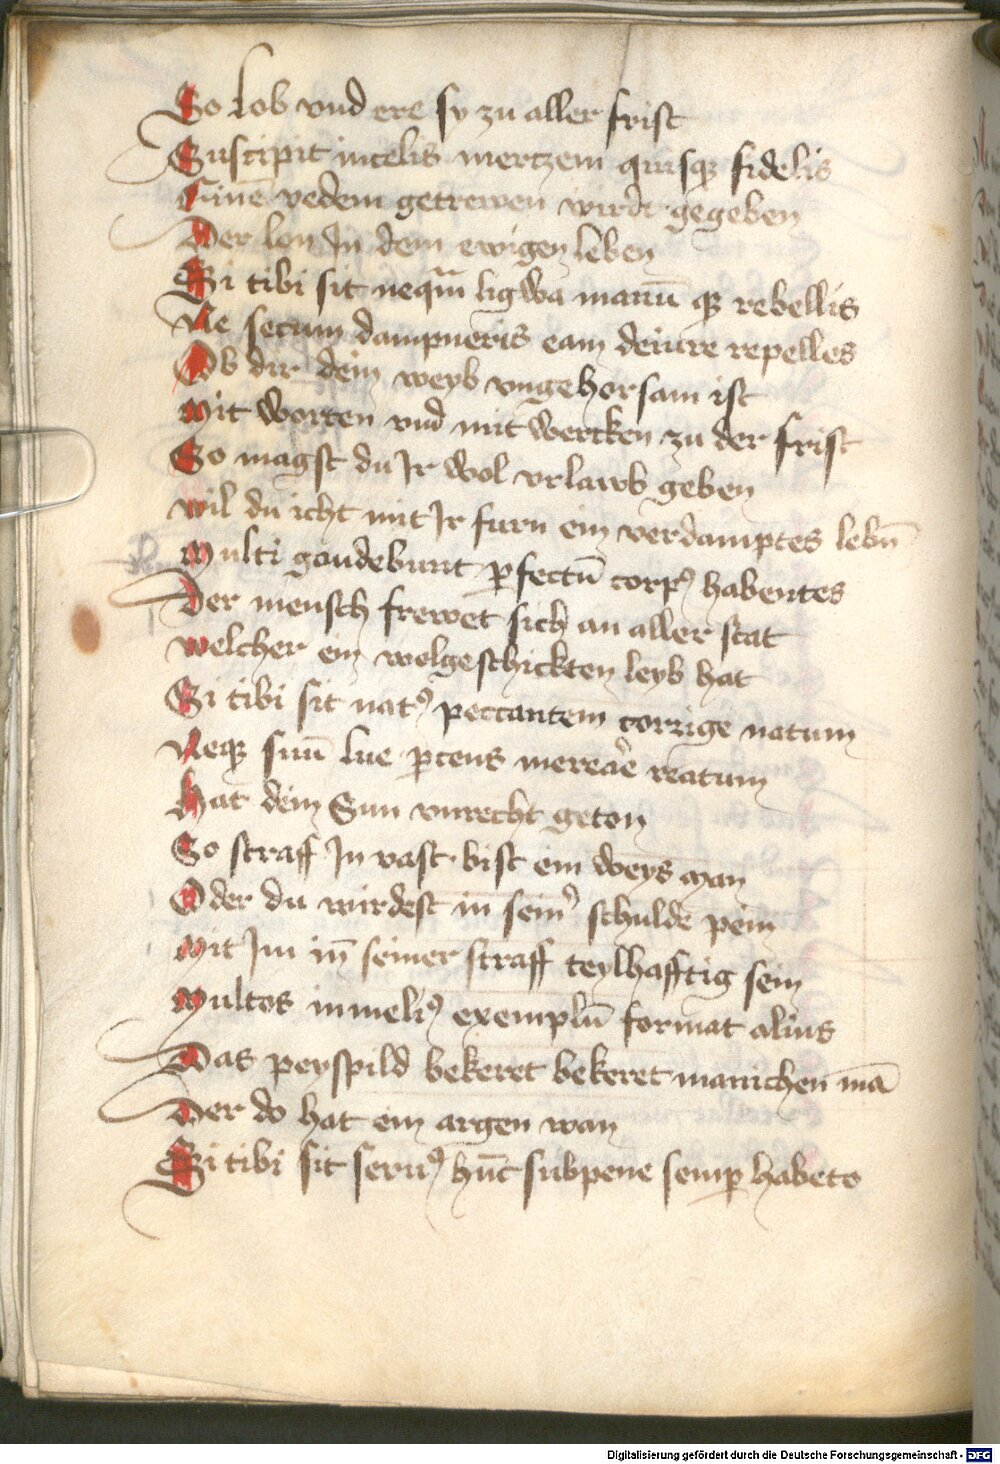 So lob vnd ere sy zu aller frist
Suscipit in celis mertzem quisqȝ fidelis
Eine͞ yedem getrewen wirdt gegeben
Der lon In dem ewigen leben
Si tibi sit nequa͞ ligwa manu͞ qȝ rebellis
Ne secum dampneris eam de iure repelles
Ob dir dein weyb vngehorsam ist
Mit worten vnd mit wercken zu der frist
So magst du Ir wol vrlawb geben
wil du icht mit Ir furn ein verdamptes lebn͞
Multi gaudebunt ꝑfectu͞ corpꝰ habentes
Der mensch frewet sich an aller stat
welcher ein wolgeschickten leyb hat
Si tibi sit natꝰ peccantem corrige natum
Neqȝ suu͞ lue ꝑcens reatum
Hat dein Sun vnrecht geton
So straff In vast bist ein weys man
Oder du wirdest in sein͛ schulde pein
Mit Im in͞ seiner straff teylhafftig sein
Multos in meliꝰ exemplu͞ format alius
Das peyspild bekeret bekeret manichen ma͞
Der do hat ein argen wan
Si tibi sit seruꝰ hu͞c sub pene semꝑ habeto
Digitalisierung gefördert durch die Deutsche Forschungsgemeinschaft - DFG